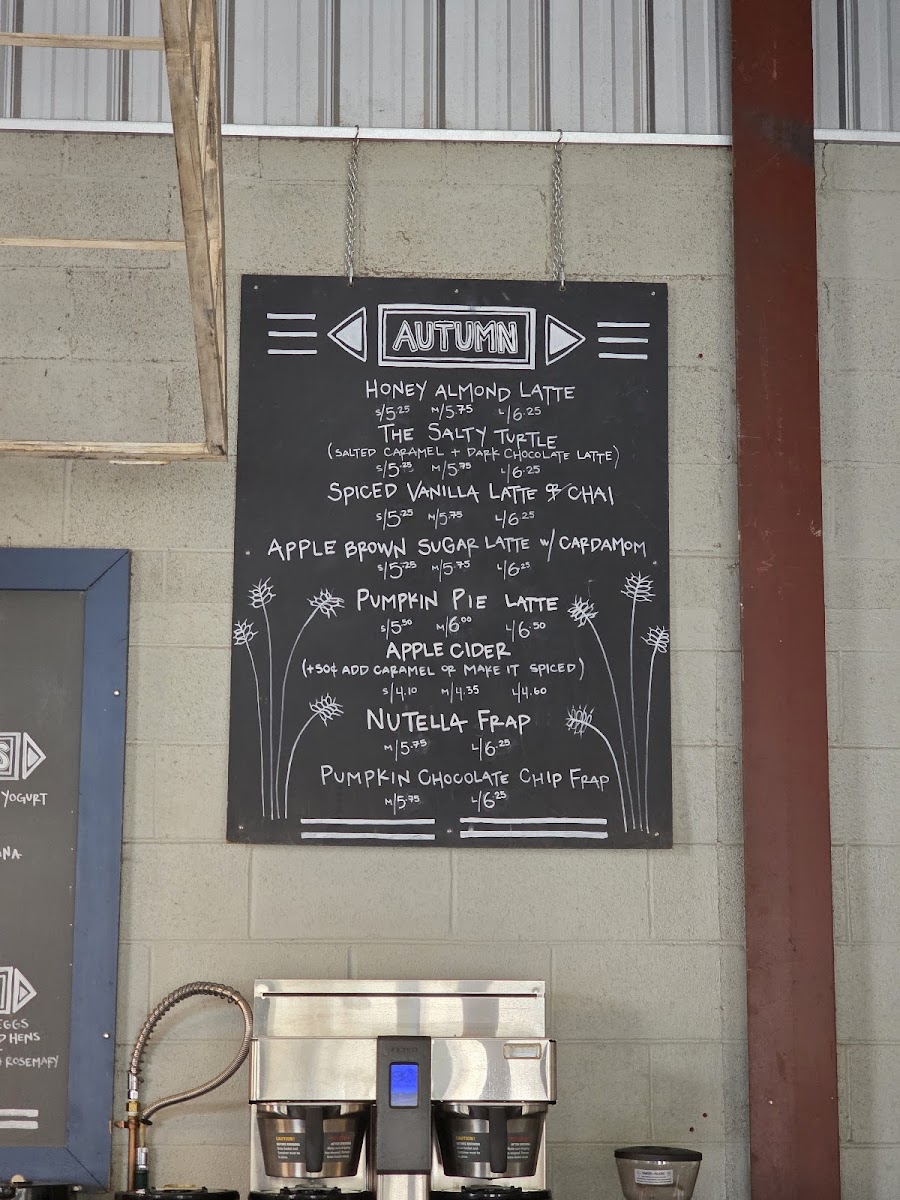 AUTUMN
HONEY ALMOND LATTE
S/5.25 M/5.75 L/6.25
THE SALTY TURTLE
(SALTED CARAMEL + DARK CHOCOLATE LATTE)
S/5.25 M/5.75 L/6.25
SPICED VANILLA LATTE OR CHAI
S/5.25 M/5.75 L/6.25
APPLE BROWN SUGAR LATTE W/ CARDAMOM
S/5.25 M/5.75 L/6.25
PUMPKIN PIE LATTE
S/5.50 M/6.00 L/6.50
APPLE CIDER
(+50¢ ADD CARAMEL OR MAKE IT SPICED)
S/4.10 M/4.35 L/4.60
NUTELLA FRAP
M/5.75 L/6.25
PUMPKIN CHOCOLATE CHIP FRAP
M/5.75 L/6.25
YOGURT
EGGS
HENS
ROSEMARY
CAUTION!